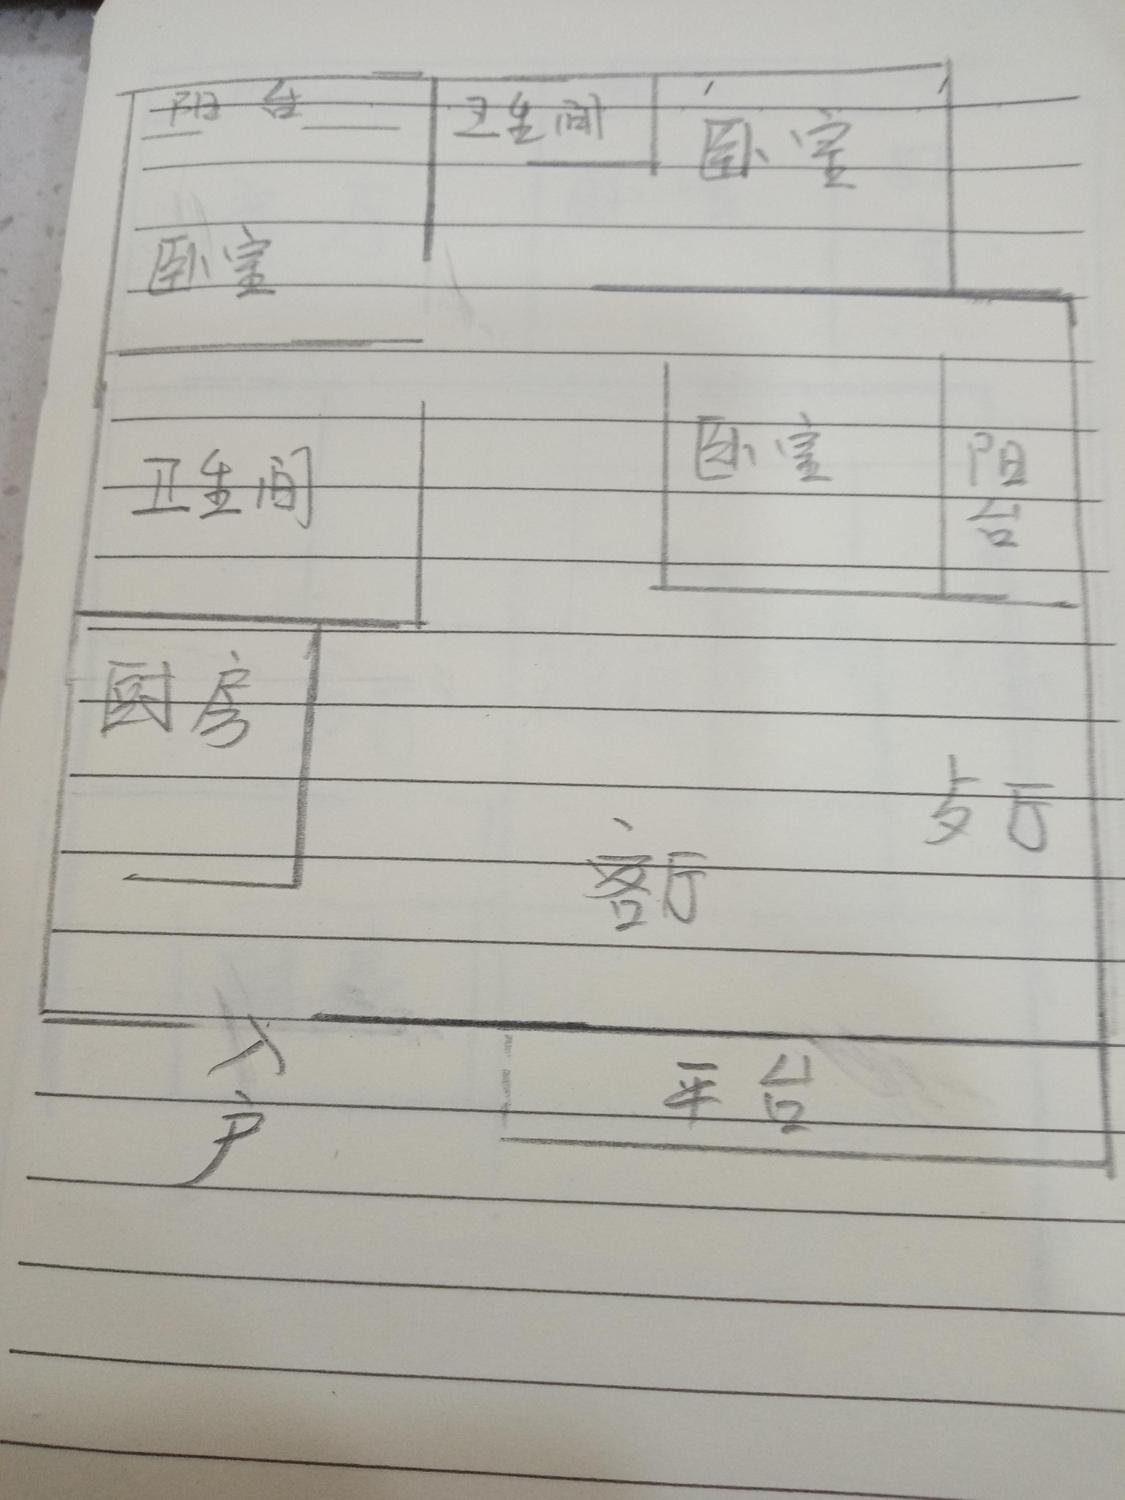 阳台
卫生间
卧室
卧室
卫生间
卧室
阳台
厨房
客厅
厅
入户
平台